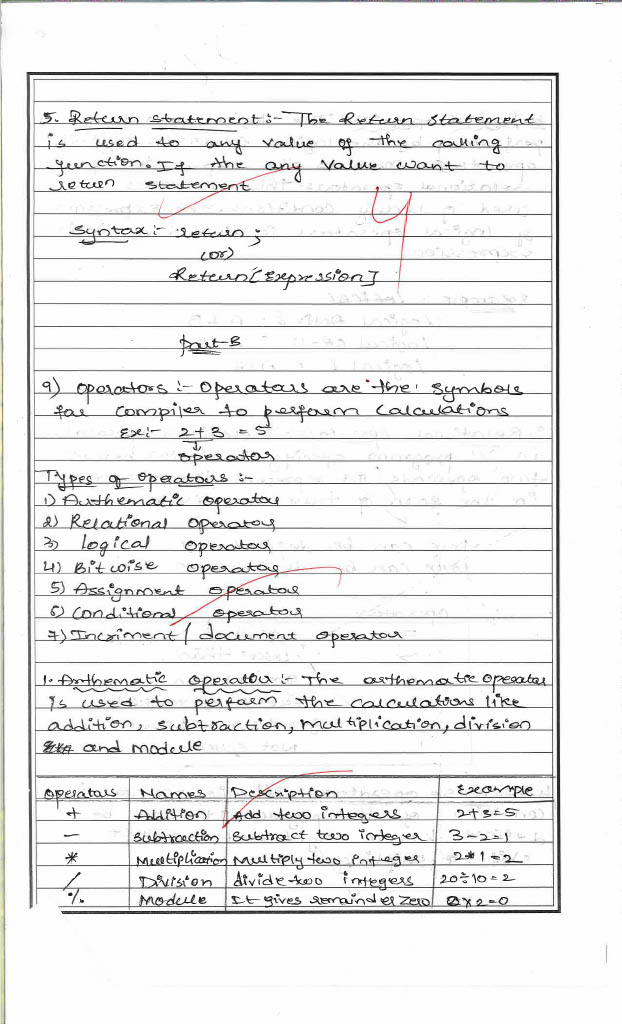 5. Return statement :- The Return statement
is used to any value of the calling
function. If the any value want to
return statement
4
Syntax :- return ;
(or)
Return [Expression]
Part-B
9) Operators :- Operators are the symbols
for compiler to perform calculations
Ex:- 2+3 = 5
operator
Types of operators :-
1) Arthematic operator
2) Relational operator
3) logical operator
4) Bitwise operator
5) Assignment operator
6) Conditional operator
7) Incriment / document operator
1. Arthematic operator :- The arthematic operator
is used to perform the calculations like
addition, subtraction, multiplication, division
and module
operators Names Description Example
+ Addition Add two integers 2+3=5
- Subtraction Subtract two integer 3-2=1
* Multiplication Multiply two integer 2*1=2
/ Division divide two integers 20÷10=2
% Module It gives remainder zero 2×2=0